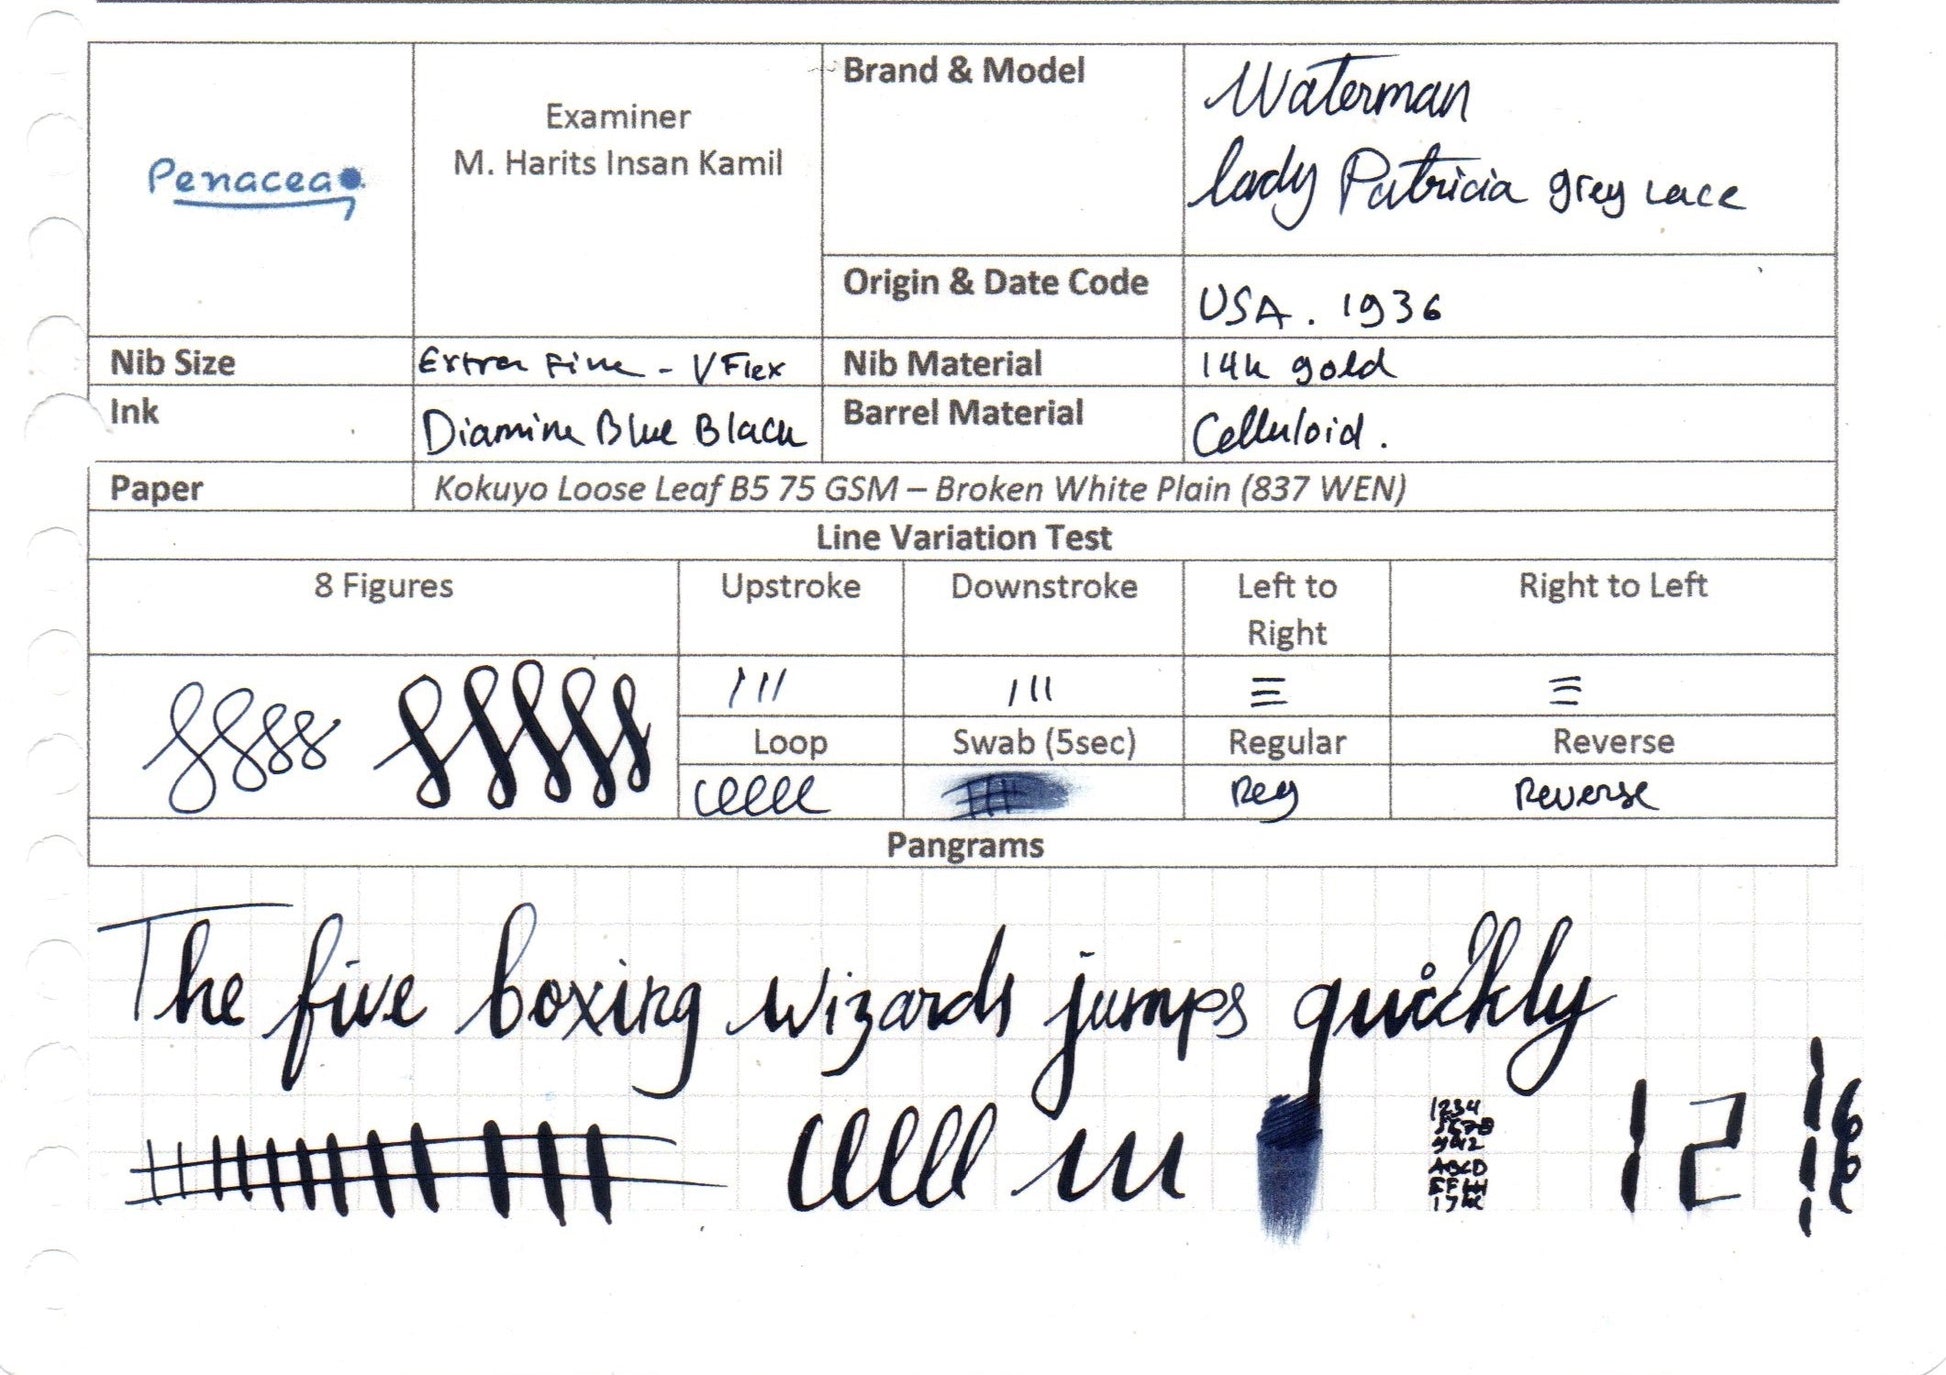 Penacea
Examiner
M. Harits Insan Kamil
Brand & Model
Waterman
lady Patricia grey Lace
Origin & Date Code
USA. 1936
Nib Size
Extra Fine - VFlex
Nib Material
14k gold
Ink
Diamine Blue Black
Barrel Material
Celluloid.
Paper
Kokuyo Loose Leaf B5 75 GSM – Broken White Plain (837 WEN)
Line Variation Test
8 Figures
Upstroke
Downstroke
Left to
Right
Right to Left
Loop
Swab (5sec)
Regular
Reverse
Reg
Reverse
Pangrams
The five boxing wizards jumps quickly
1234
ABCD